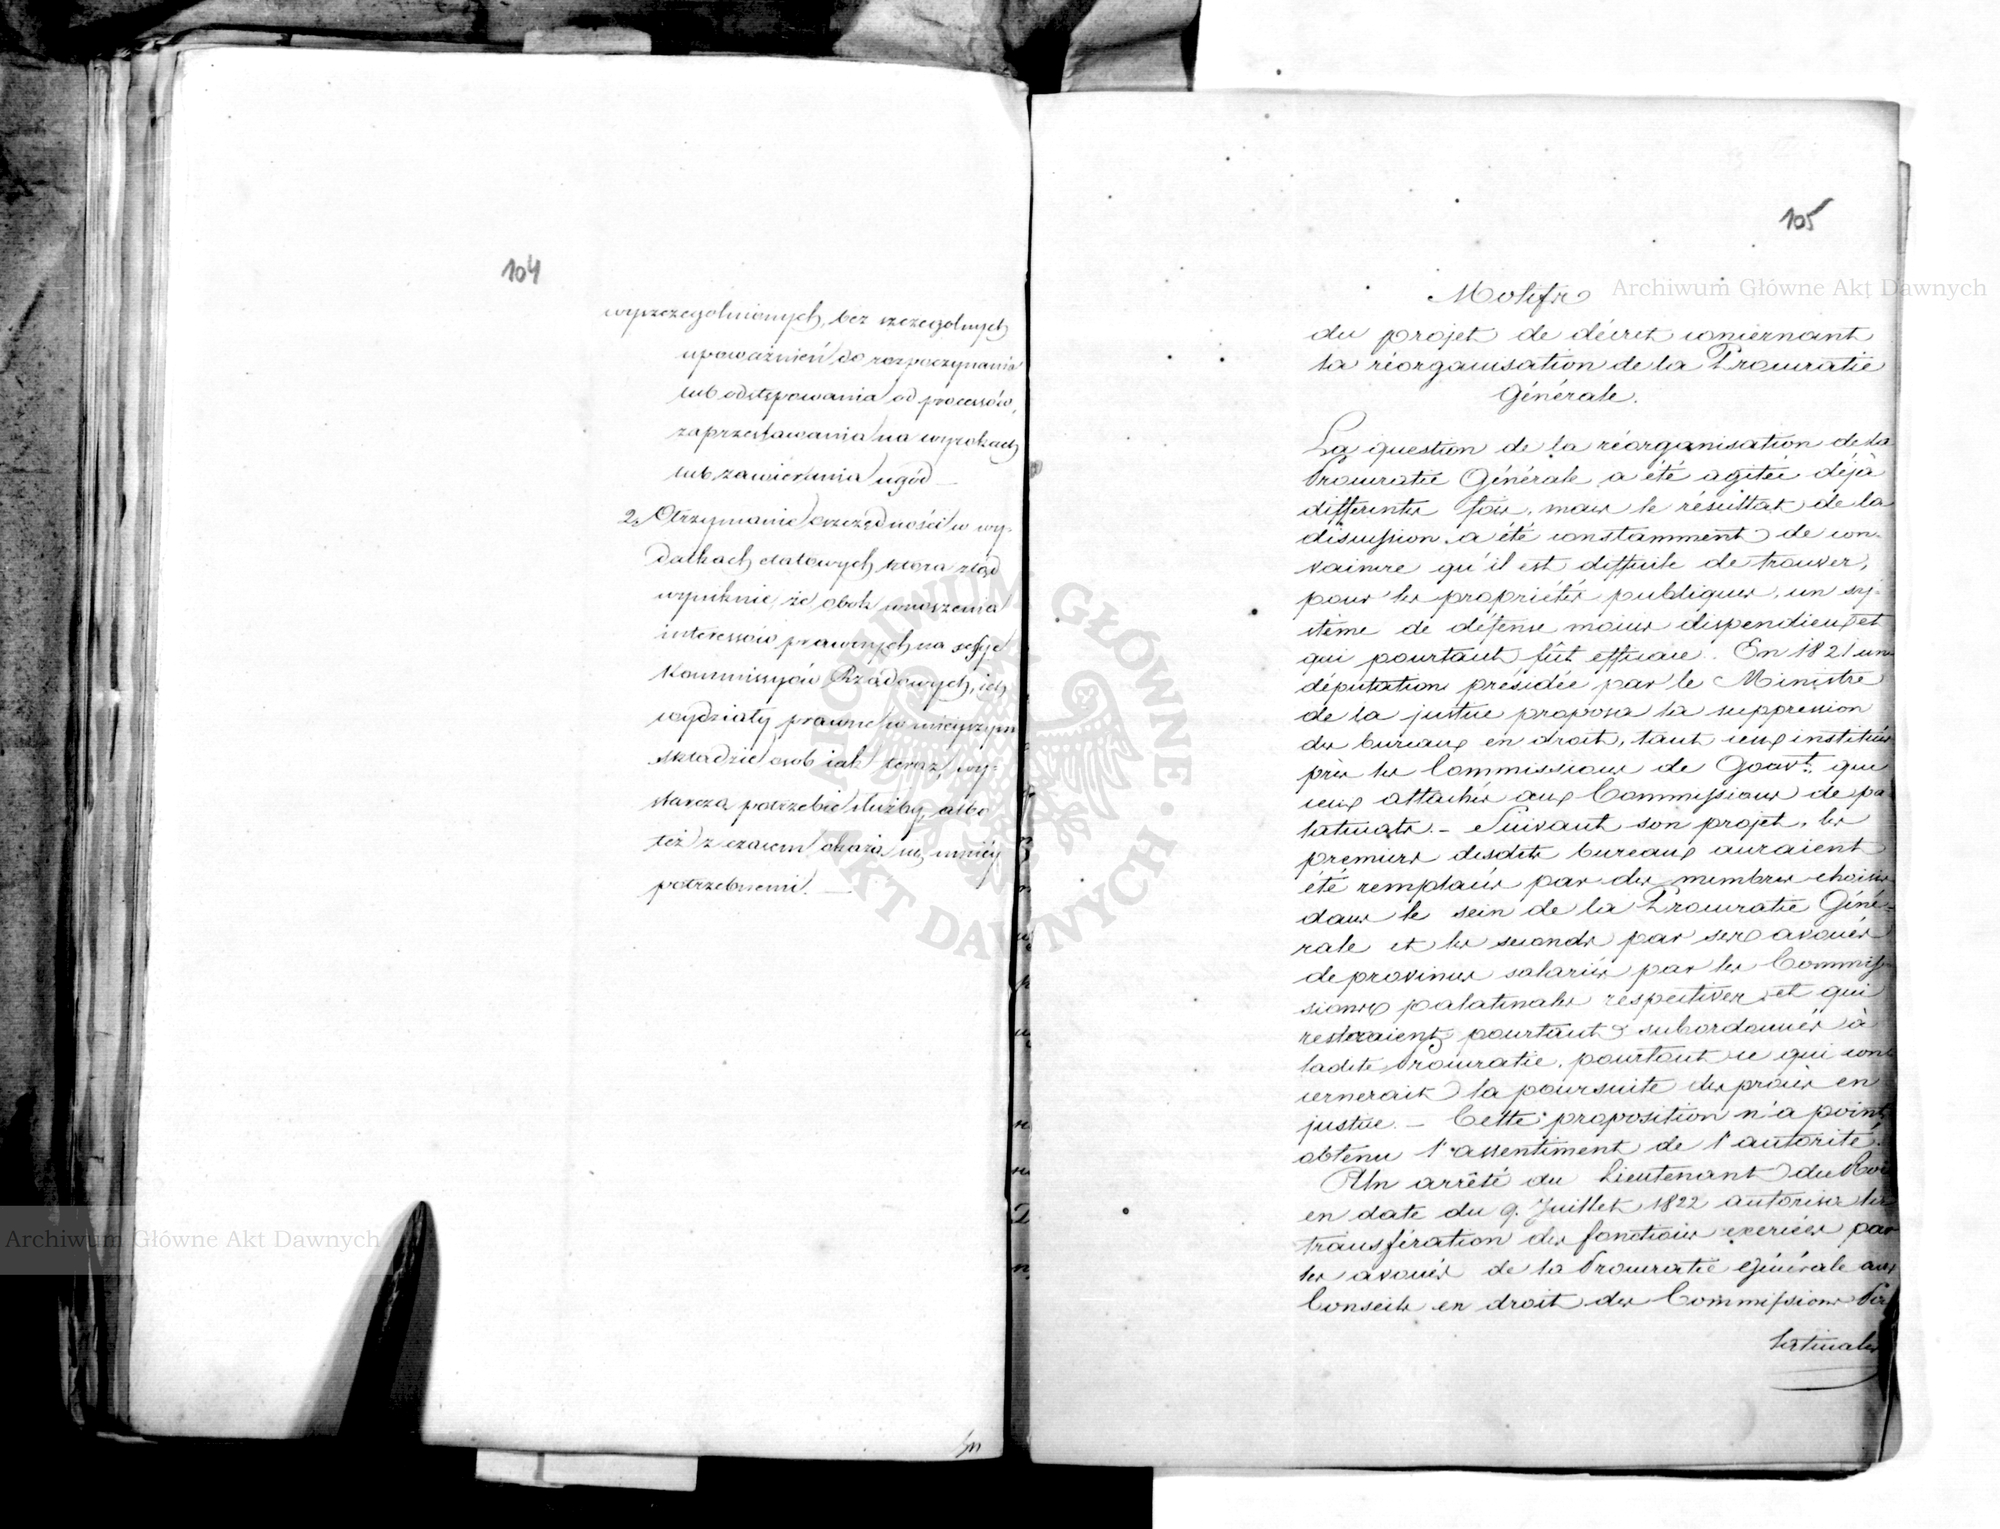 104
wyszczególnionych, bez szczególnych
upoważnień do rozpoczynania
lub odstępowania od processów,
zaprzestawania na wyrokach
lub zawierania ugód —
2. Otrzymanie oszczędności w wy-
datkach etatowych, która ztąd
wyniknie, że obok wnoszenia
interessów prawnych na sessye
Kommissyów Rządowych, ich
wydziały prawne w mnieyszym
składzie osób iak teraz, wy-
starczą potrzebie służby, albo
też z czasem okażą się mniéy
potrzebnemi. —
105
Motifs
du projet de décret concernant
la réorganisation de la Procuratie
Générale.
La question de la réorganisation de la
Procuratie Générale a été agitée déjà
differentes fois, mais le résultat de la
discussion a été constamment de con-
vaincre qu'il est difficile de trouver,
pour les propriétés publiques, un sy-
stème de défense moins dispendieux et
qui pourtant fût efficace. En 1821 une
députation présidée par le Ministre
de la justice proposa la suppression
des bureaux en droit, tant ceux institués
près les Commissions de Gouvt. que
ceux attachés aux Commissions de pa-
latinats. — Suivant son projet, les
premiers desdits bureaux auraient
été remplacés par des membres choisis
dans le sein de la Procuratie Géné-
rale et les seconds par ses avoués
de provinces salariés par les Commis-
sions palatinales respectives et qui
resteraient pourtant subordonnés à
ladite Procuratie, pourtout ce qui con-
cernerait la poursuite des procès en
justice. — Cette proposition n'a point
obtenu l'assentiment de l'autorité.
Un arrêté du Lieutenant du Roi
en date du 9. Juillet 1822 autorisa la
transfération des fonctions exercées par
les avoués de la Procuratie Générale aux
Conseils en droit des Commissions Pa-
latinales
Archiwum Główne Akt Dawnych
Archiwum Główne Akt Dawnych
ARCHIWUM GŁÓWNE · AKT DAWNYCH ·